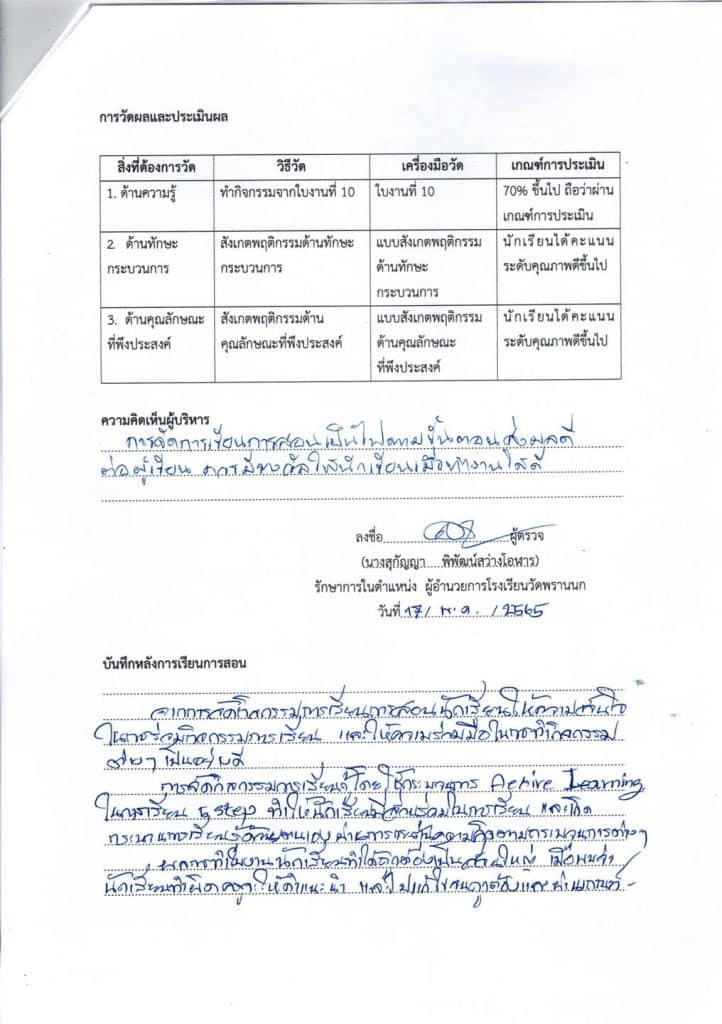 การวัดผลและประเมินผล
สิ่งที่ต้องการวัด วิธีวัด เครื่องมือวัด เกณฑ์การประเมิน
1. ด้านความรู้ ทำกิจกรรมจากใบงานที่ 10 ใบงานที่ 10 70% ขึ้นไป ถือว่าผ่าน
เกณฑ์การประเมิน
2. ด้านทักษะ สังเกตพฤติกรรมด้านทักษะ แบบสังเกตพฤติกรรม นักเรียนได้คะแนน
กระบวนการ กระบวนการ ด้านทักษะ ระดับคุณภาพดีขึ้นไป
กระบวนการ
3. ด้านคุณลักษณะ สังเกตพฤติกรรมด้าน แบบสังเกตพฤติกรรม นักเรียนได้คะแนน
ที่พึงประสงค์ คุณลักษณะที่พึงประสงค์ ด้านคุณลักษณะ ระดับคุณภาพดีขึ้นไป
ที่พึงประสงค์
ความคิดเห็นผู้บริหาร
การจัดการเรียนการสอนเป็นไปตามขั้นตอนส่งผลดี
ต่อผู้เรียน ควรมีรางวัลให้นักเรียนเมื่อทำงานได้ดี
ลงชื่อ ผู้ตรวจ
(นางสุกัญญา พิพัฒน์สว่างโอฬาร)
รักษาการในตำแหน่ง ผู้อำนวยการโรงเรียนวัดพรานนก
วันที่ 17 / พ.ค. / 2565
บันทึกหลังการเรียนการสอน
จากการจัดกิจกรรมการเรียนการสอนนักเรียนให้ความสนใจ
ในการร่วมกิจกรรมการเรียน และให้ความร่วมมือในการทำกิจกรรม
ต่างๆ เป็นอย่างดี
การจัดกิจกรรมการเรียนรู้โดยใช้กระบวนการ Active Learning
ในการเรียน 5 step ทำให้นักเรียนมีส่วนร่วมในการเรียน และเกิด
กระบวนการเรียนรู้ด้วยตนเอง ผ่านการ ความคิดตามกระบวนการต่างๆ
ผลการทำใบงานนักเรียนทำได้ถูกต้องเป็นส่วนใหญ่ เมื่อพบว่า
นักเรียนทำผิดครูจะให้คำแนะนำ และไปแก้ไขจนถูกต้องและผ่านเกณฑ์